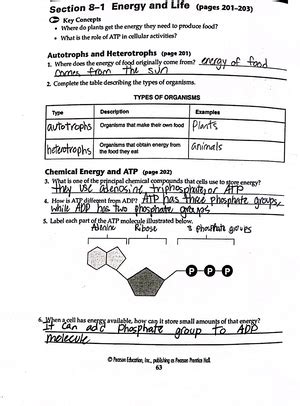 Section 8–1 Energy and Life (pages 201–203)
Key Concepts
• Where do plants get the energy they need to produce food?
• What is the role of ATP in cellular activities?
Autotrophs and Heterotrophs (page 201)
1. Where does the energy of food originally come from? energy of food
comes from the sun
2. Complete the table describing the types of organisms.
TYPES OF ORGANISMS
Type Description Examples
autotrophs Organisms that make their own food Plants
heterotrophs Organisms that obtain energy from the food they eat animals
Chemical Energy and ATP (page 202)
3. What is one of the principal chemical compounds that cells use to store energy?
They use adenosine triphosphate, or ATP
4. How is ATP different from ADP? ATP has three phosphate groups,
while ADP has two phosphate groups
5. Label each part of the ATP molecule illustrated below.
Adenine Ribose 3 phosphate groups
P P P
6. When a cell has energy available, how can it store small amounts of that energy?
It can add phosphate group to ADP
molecule
© Pearson Education, Inc., publishing as Pearson Prentice Hall.
63